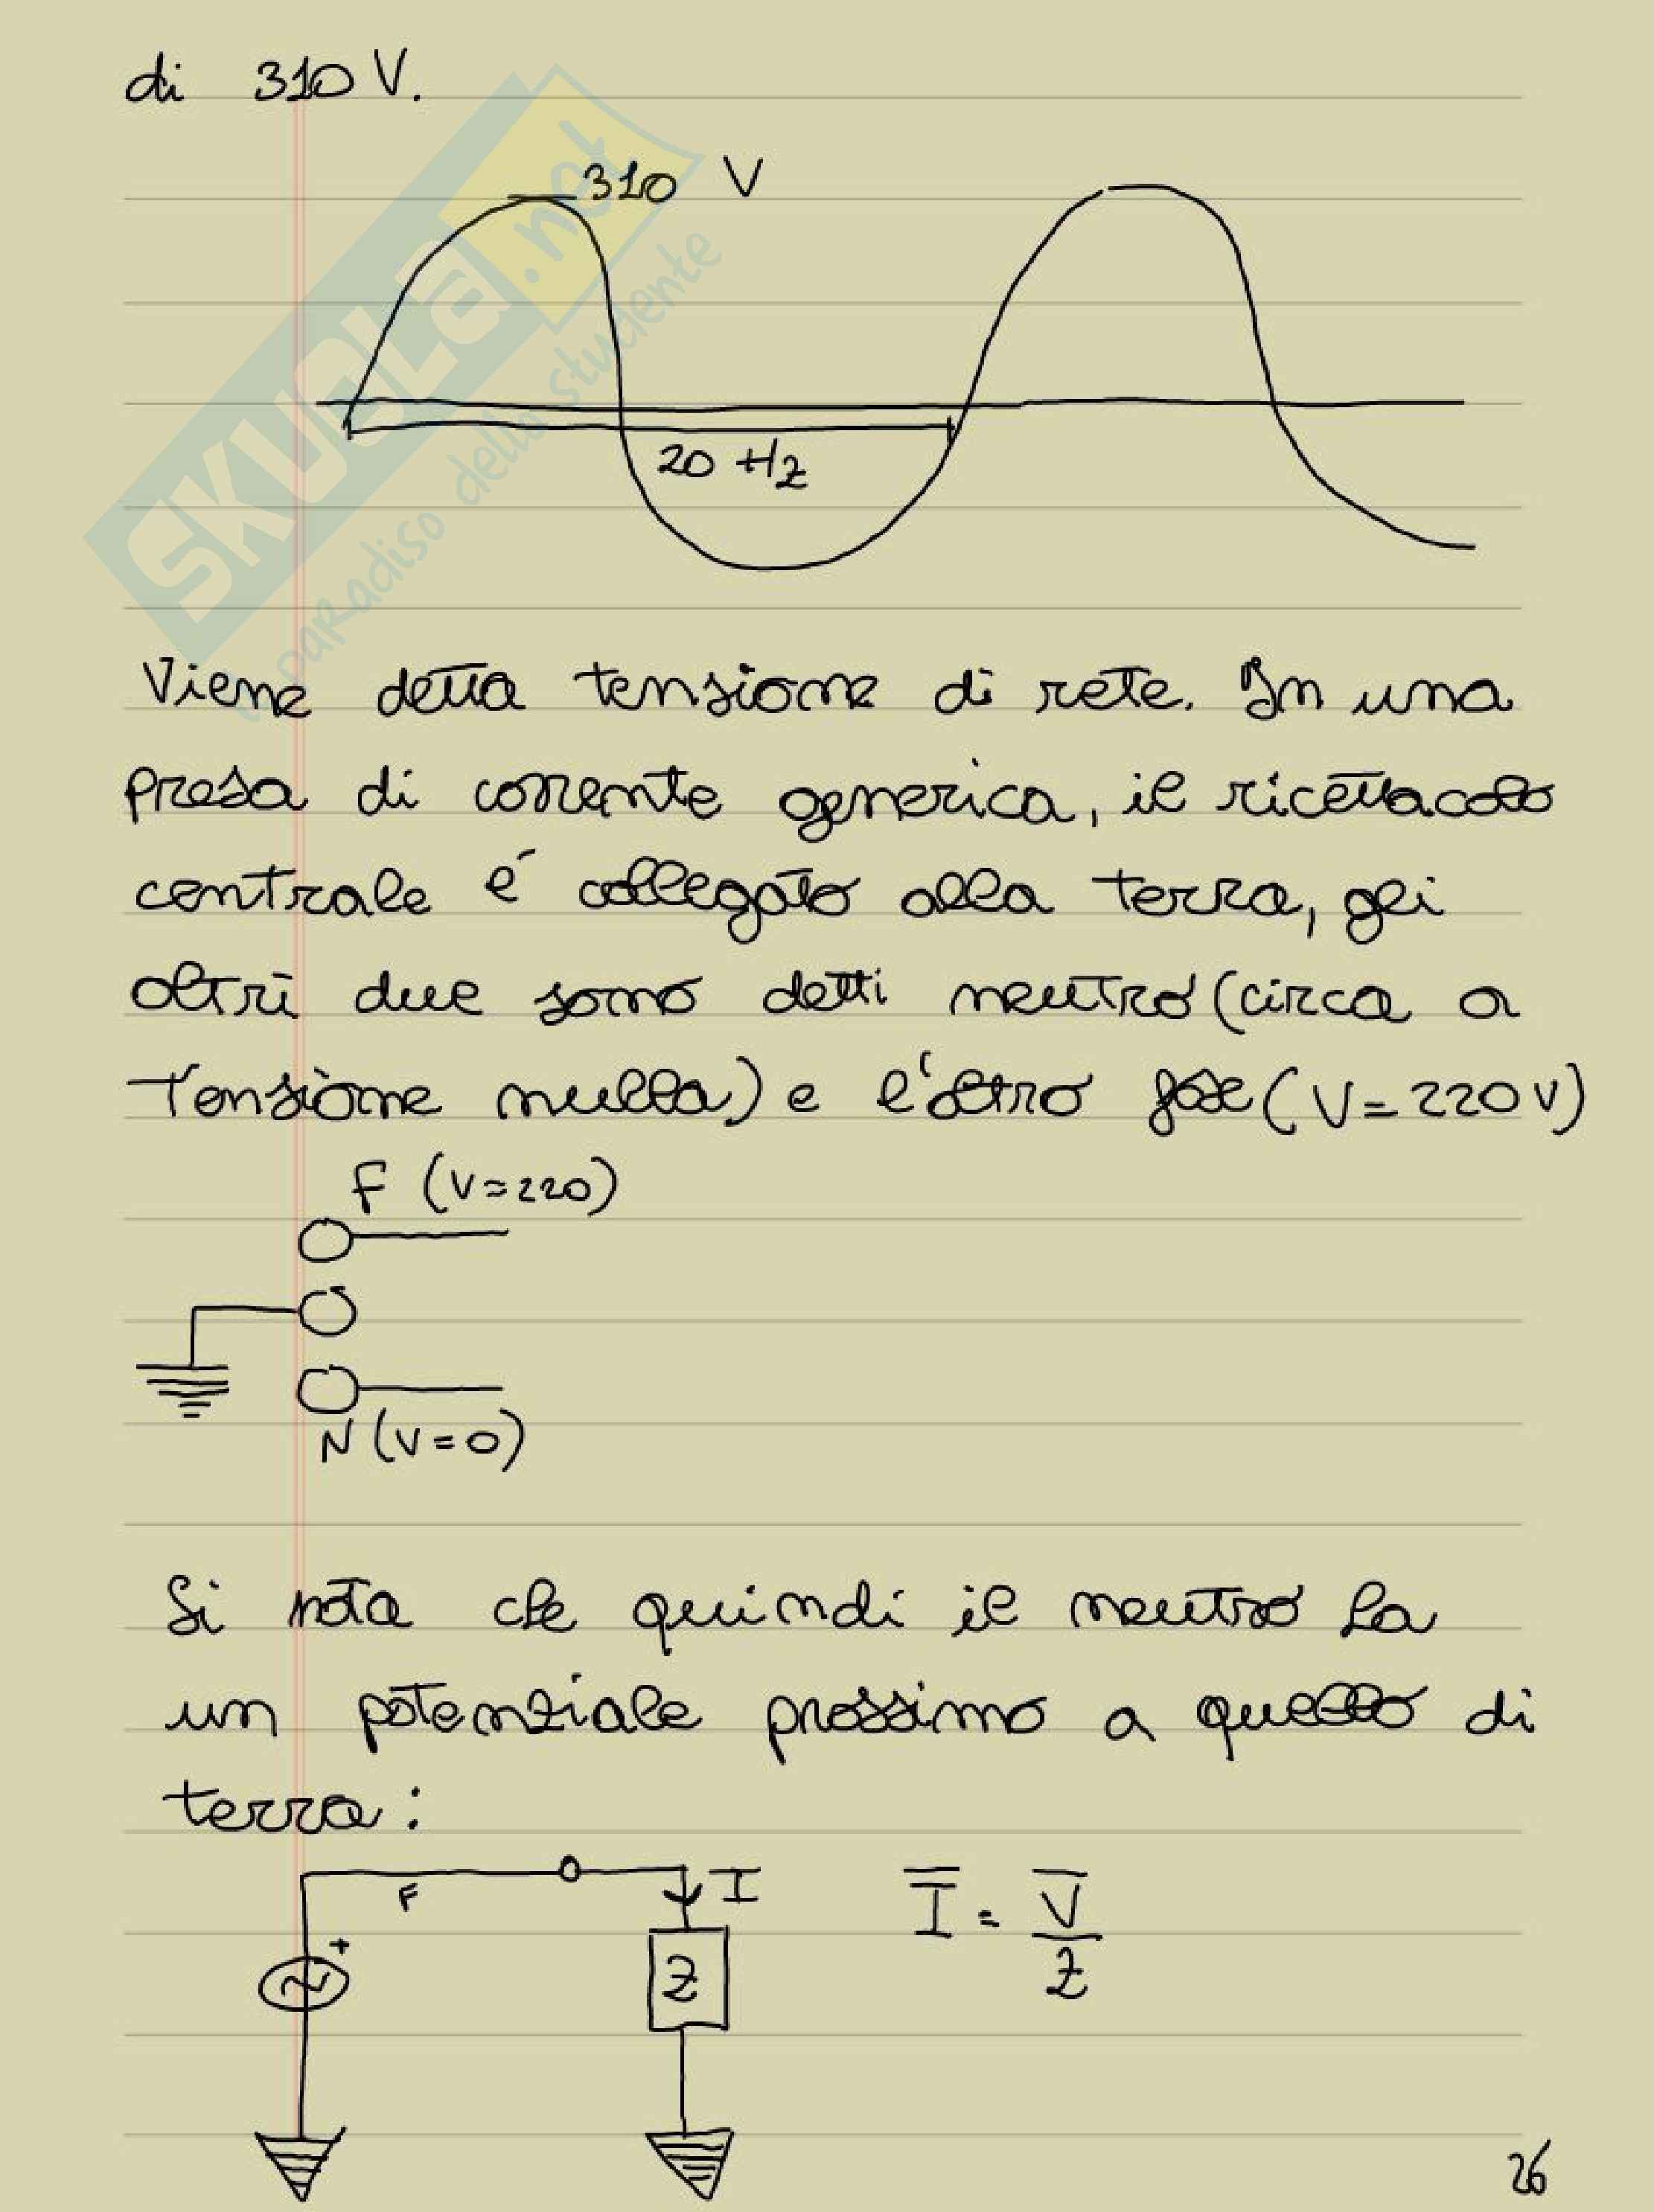 di 310 V.
310 V
20 Hz
SKUOLA.net
il paradiso dello studente
Viene detta tensione di rete. In una
presa di corrente generica, il ricettacolo
centrale é collegato alla terra, gli
altri due sono detti neutro (circa a
tensione nulla) e l'altro fase (V=220V)
F (V≈220)
N (V=0)
Si nota che quindi il neutro ha
un potenziale prossimo a quello di
terra:
F
I
+
Z
I = V
Z
26